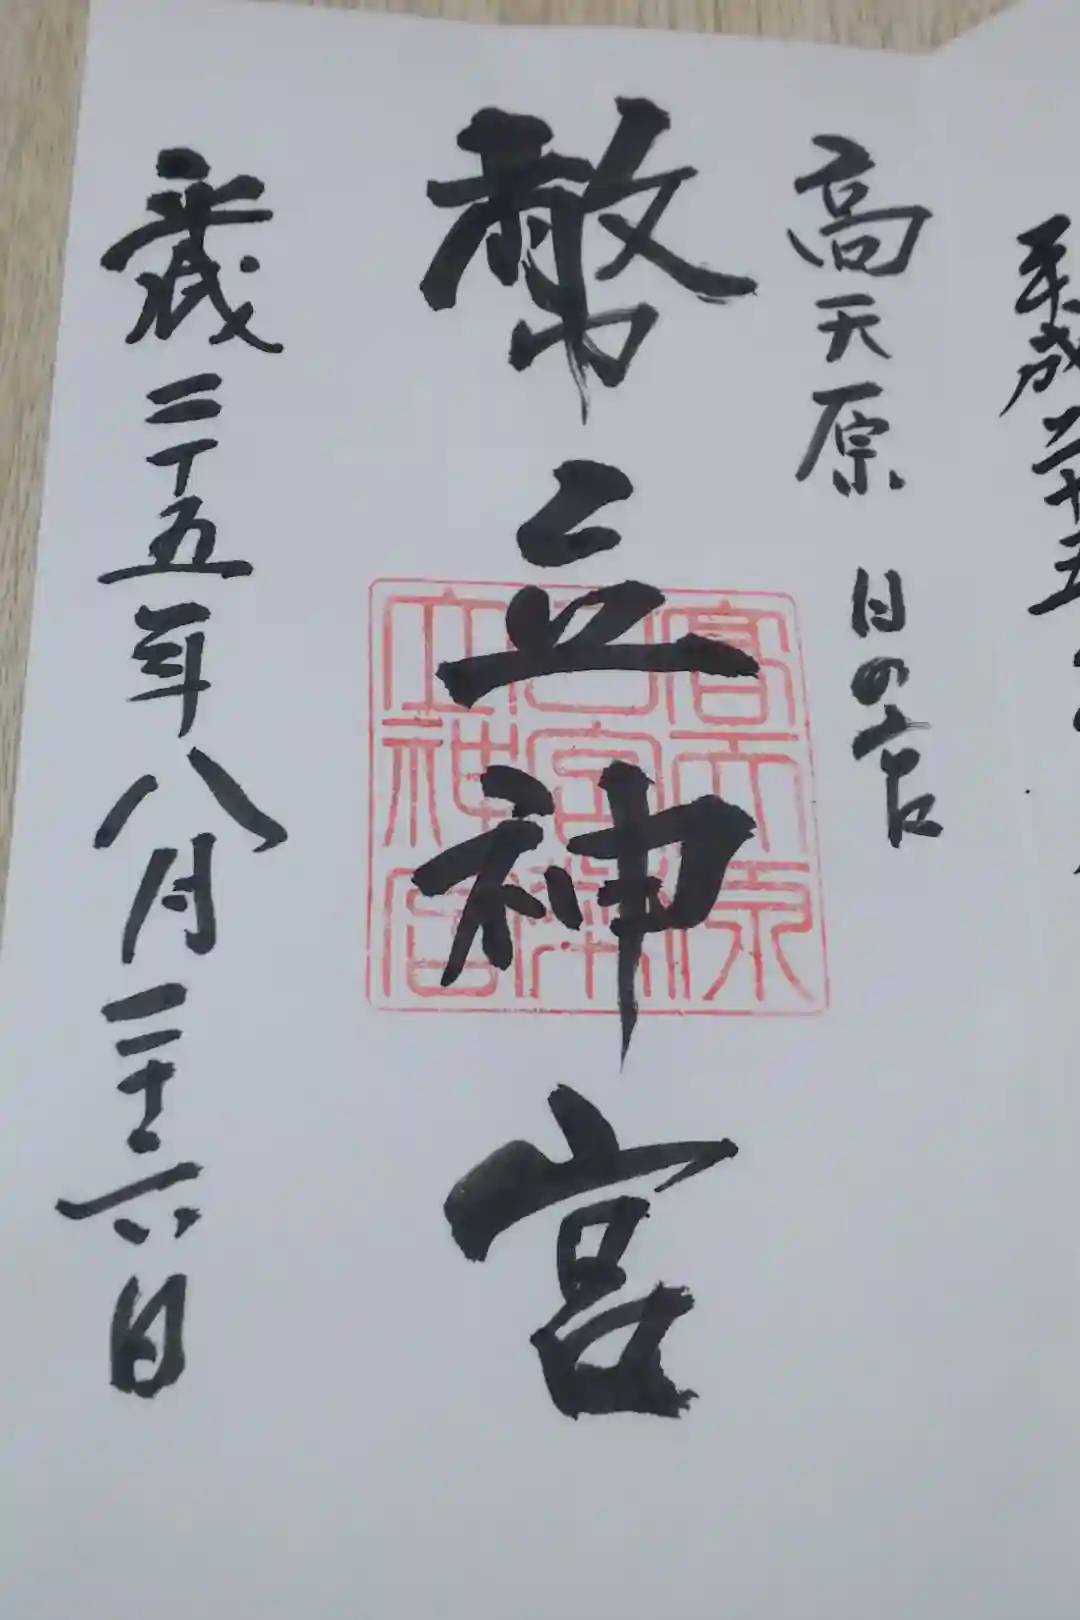 平成二十五
高天原 日の宮
幣立神宮
高天原
日宮幣
立神宮
平成二十五年八月二十六日